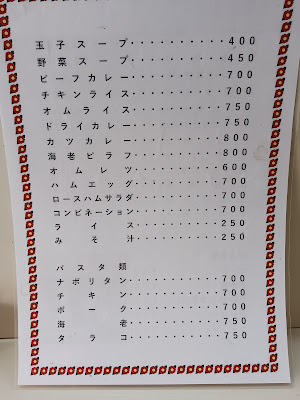 玉子スープ・・・・・・・・・・400
野菜スープ・・・・・・・・・・450
ビーフカレー・・・・・・・・・・700
チキンライス・・・・・・・・・・700
オムライス・・・・・・・・・・750
ドライカレー・・・・・・・・・・750
カツカレー・・・・・・・・・・800
海老ピラフ・・・・・・・・・・800
オムレツ・・・・・・・・・・600
ハムエッグ・・・・・・・・・・700
ロースハムサラダ・・・・・・・・・・700
コンビネーション・・・・・・・・・・700
ライス・・・・・・・・・・250
みそ汁・・・・・・・・・・250
パスタ類
ナポリタン・・・・・・・・・・700
チキン・・・・・・・・・・700
ポーク・・・・・・・・・・700
海老・・・・・・・・・・750
タラコ・・・・・・・・・・750